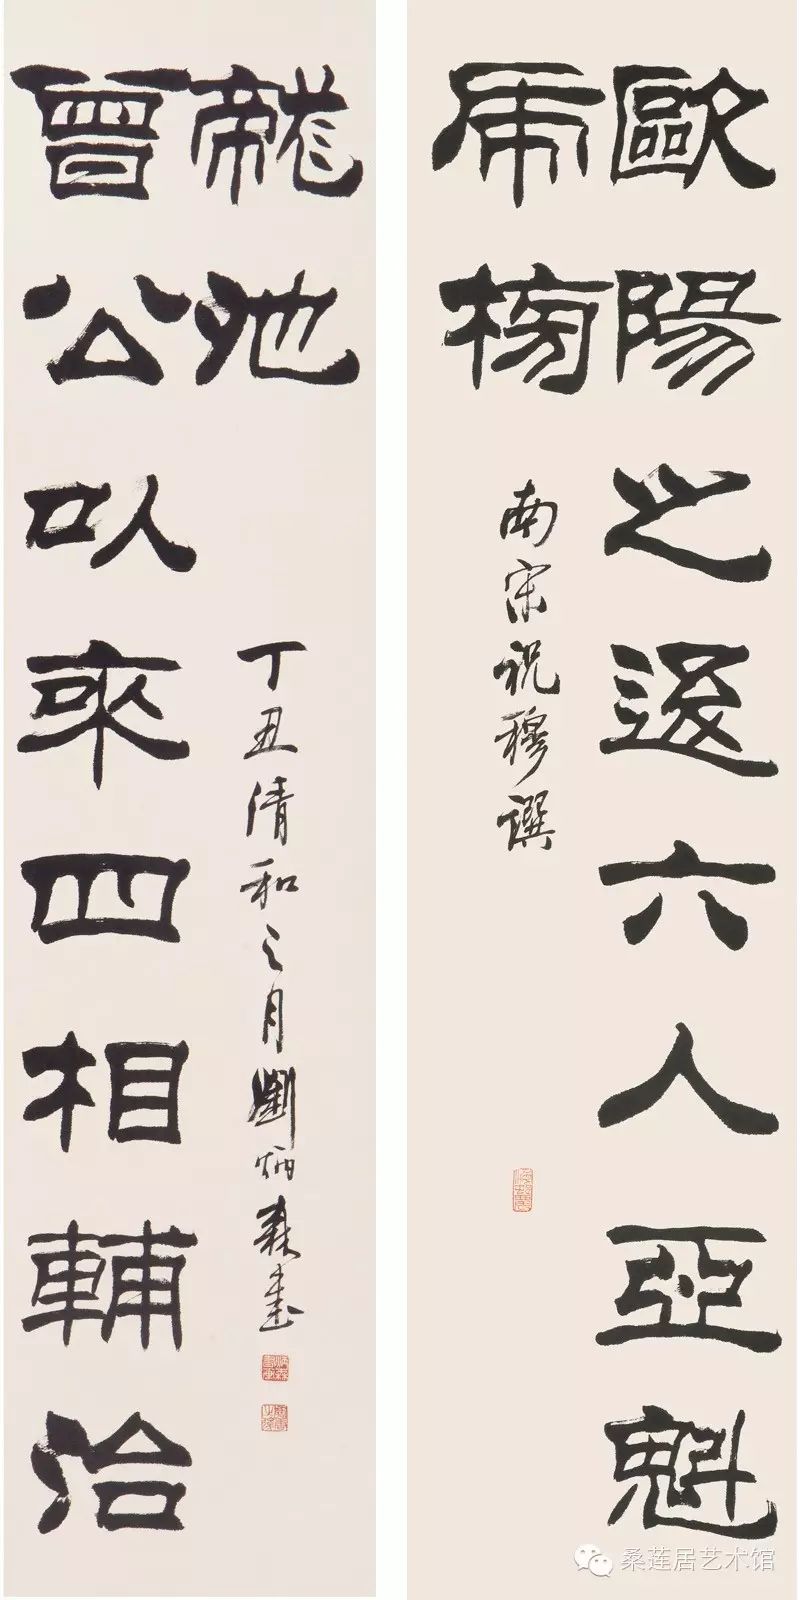 歐陽之後六人亞魁
虎榜
南宋祝穆撰
曾公以來四相輔治
龍池
丁丑清和之月劉炳森書
桑莲居艺术馆